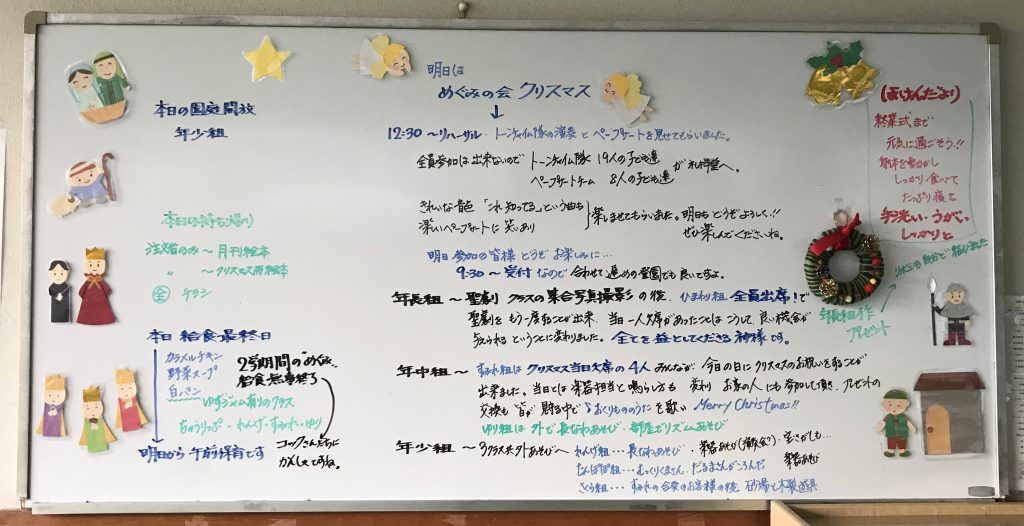 本日の園庭開放
年少組
本日の持ち帰り
注文者のみ～月刊絵本
〃 ～クリスマス用絵本
全 チラシ
本日 給食最終日
カラメルチキン
野菜スープ
白パン
2学期間の"めぐみ"
給食無事終了
ゆずジャム有りのクラス
ちゅうりっぷ・れんげ・すみれ・ゆり
コックさんたちに
明日から 午前保育です
明日は
めぐみの会 クリスマス
12:30 ～リハーサル・トーンチャイム隊の演奏とペープサートを見せてもらいました。
全員参加は出来ないので トーンチャイム隊 19人の子ども達
ペープサートチーム 8人の子ども達
が 礼拝堂へ。
きれいな音色「これ知ってる」という曲も
楽しいペープサートに 笑いあり
楽しませてもらいました。明日も どうぞよろしく!!
ぜひ楽しんでくださいね。
明日 参加の皆様 どうぞ お楽しみに…
9:30～受付 なので 合わせて 遅めの登園でも良いですよ。
年長組～聖劇 クラスの集合写真撮影の後、ひまわり組 全員出席!で
聖劇を もう一度することが出来、当日 一人欠席があったことは こうして、良い機会が
与えられる ということに変わりました。全てを益としてくださる神様です。
年中組～すみれ組は クリスマス当日欠席の4人 みんなが 今日の日にクリスマスのお祝いをすることが
出来ました。当日とは 楽器担当と鳴らし方も 変わり お客の人にも参加して頂き、プレゼントの
交換も 皆が 贈る中で ♪おくりもののうたを歌い Merry Christmas!!
ゆり組は 外で 長なわあそび・部屋でリズムあそび
年少組～3クラス共外あそびへ れんげ組…長なわあそび・宝さがし…
たんぽぽ組…むっくりくまさん、だるまさんがころんだ 楽器あそび
さくら組…すみれの合奏のお客様の後 砂場と木製道具
(ほけんだより)
終業式まで
元気に過ごそう!!
身体を動かし
しっかり食べて
たっぷり寝て
手洗い・うがい
しっかりと
リボンも自分で結びました
年長組作
プレゼント